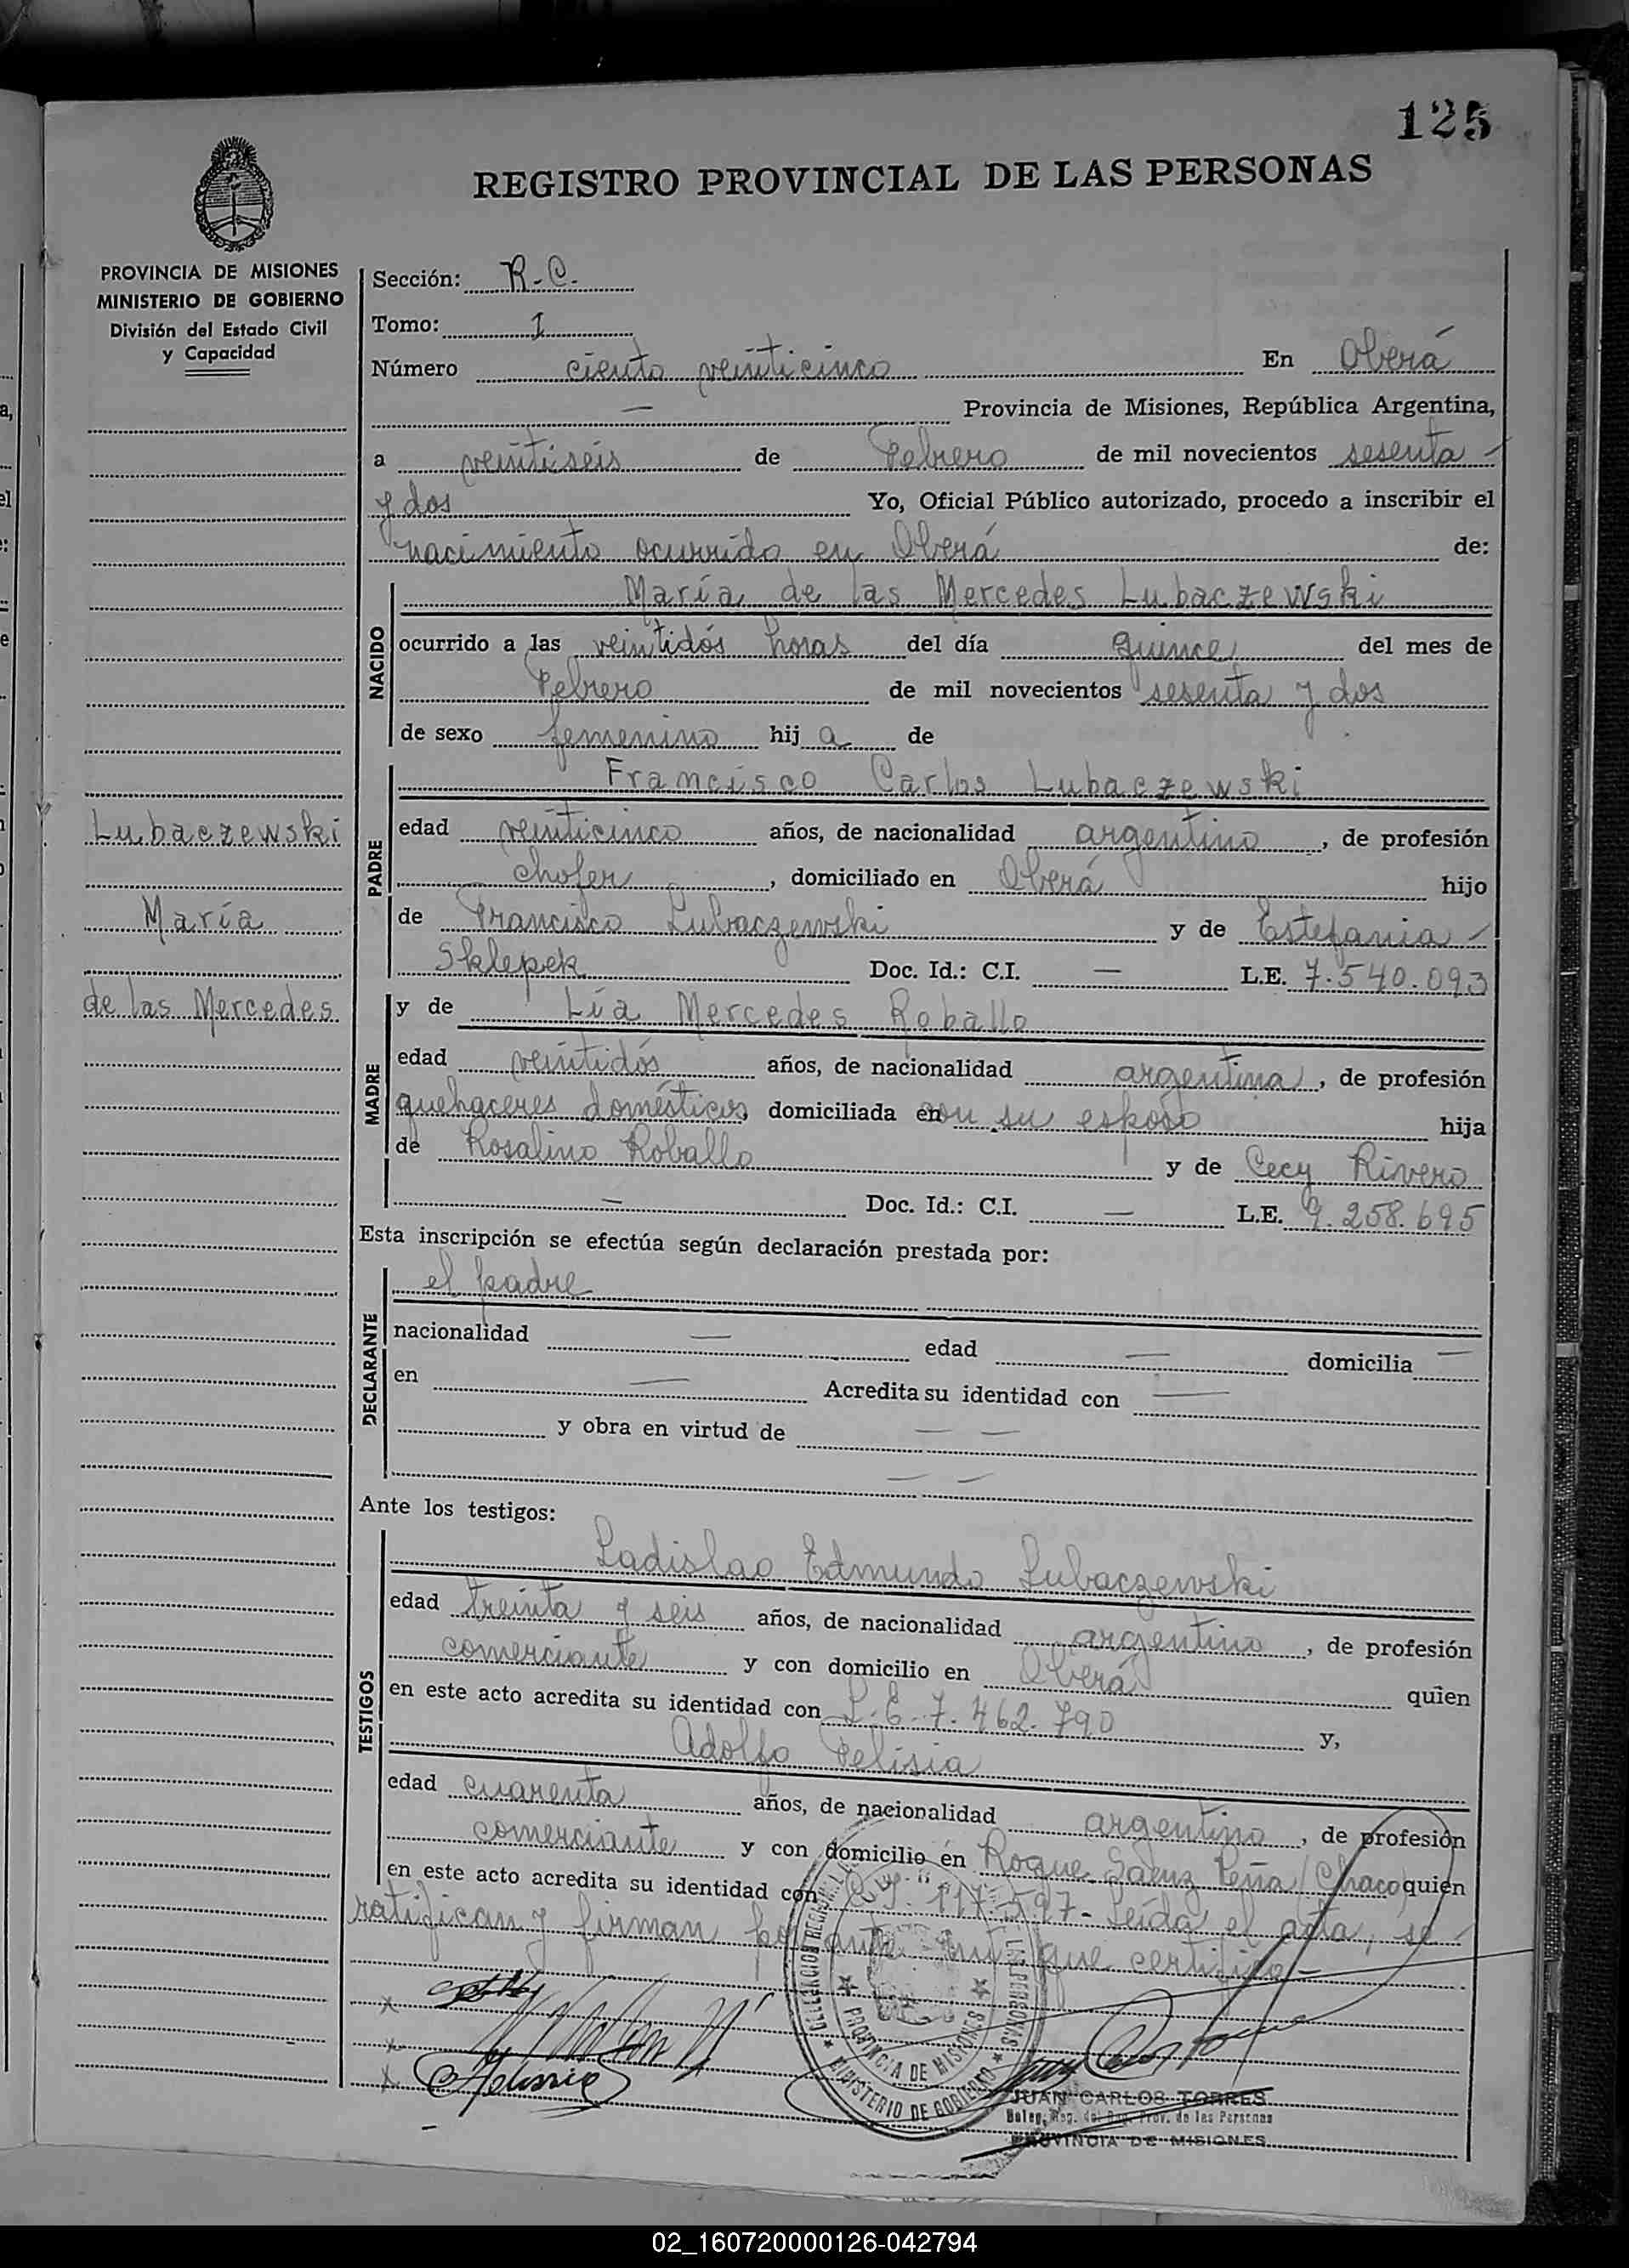 125
REGISTRO PROVINCIAL DE LAS PERSONAS
PROVINCIA DE MISIONES
MINISTERIO DE GOBIERNO
División del Estado Civil
y Capacidad
Sección: R.C.
Tomo: 1
Número ciento veinticinco En Oberá
— Provincia de Misiones, República Argentina,
a veintiseis de Febrero de mil novecientos sesenta
y dos Yo, Oficial Público autorizado, procedo a inscribir el
nacimiento ocurrido en Oberá de:
NACIDO
María de las Mercedes Lubaczewski
ocurrido a las veintidós horas del día quince del mes de
Febrero de mil novecientos sesenta y dos
de sexo femenino hij a de
PADRE
Francisco Carlos Lubaczewski
edad veinticinco años, de nacionalidad argentino, de profesión
chofer, domiciliado en Oberá hijo
de Francisco Lubaczewski y de Estefania
Sklepek Doc. Id.: C.I. — L.E. 7.540.093
Lubaczewski
María
de las Mercedes
MADRE
y de Lía Mercedes Roballo
edad veintidós años, de nacionalidad argentina, de profesión
quehaceres domésticos, domiciliada en con su esposo hija
de Rosalino Roballo y de Cecy Rivero
— Doc. Id.: C.I. — L.E. 9.258.695
Esta inscripción se efectúa según declaración prestada por:
DECLARANTE
el padre
nacionalidad — edad — domicilia —
en — Acredita su identidad con —
y obra en virtud de — —
— —
Ante los testigos:
TESTIGOS
Ladislao Edmundo Lubaczewski
edad treinta y seis años, de nacionalidad argentino, de profesión
comerciante y con domicilio en Oberá quien
en este acto acredita su identidad con L.E. 7.462.790 y,
Adolfo Pelisia
edad cuarenta años, de nacionalidad argentino, de profesión
comerciante y con domicilio en Roque Saenz Peña (Chaco) quien
en este acto acredita su identidad con 117.597- Leída el acta, se
ratifican y firman por ante mi que certifico-
PROVINCIA DE MISIONES
MINISTERIO DE GOBIERNO
JUAN CARLOS TORRES
Prov. de las Personas
PROVINCIA DE MISIONES
02_160720000126-042794